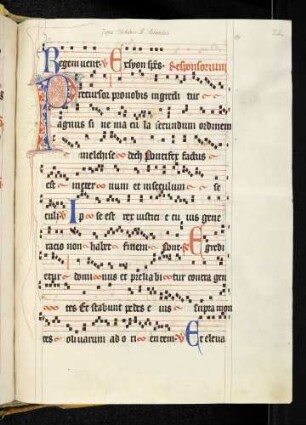 Regem uent. V Ex syon spes. Responsorium
Precursor pro nobis ingredi tur
agnus si ne ma cu la secundum ordinem
melchise dech Pontifex factus
est in eter num et in seculum se
culi V Ip se est rex iusticie cu ius gene
racio non habet finem Pont. R Egredi
etur domi nus et prelia bi tur contra gen
tes Et stabunt pedes e ius supra mon
tes oliuarum ad o ri en tem V Et eleua